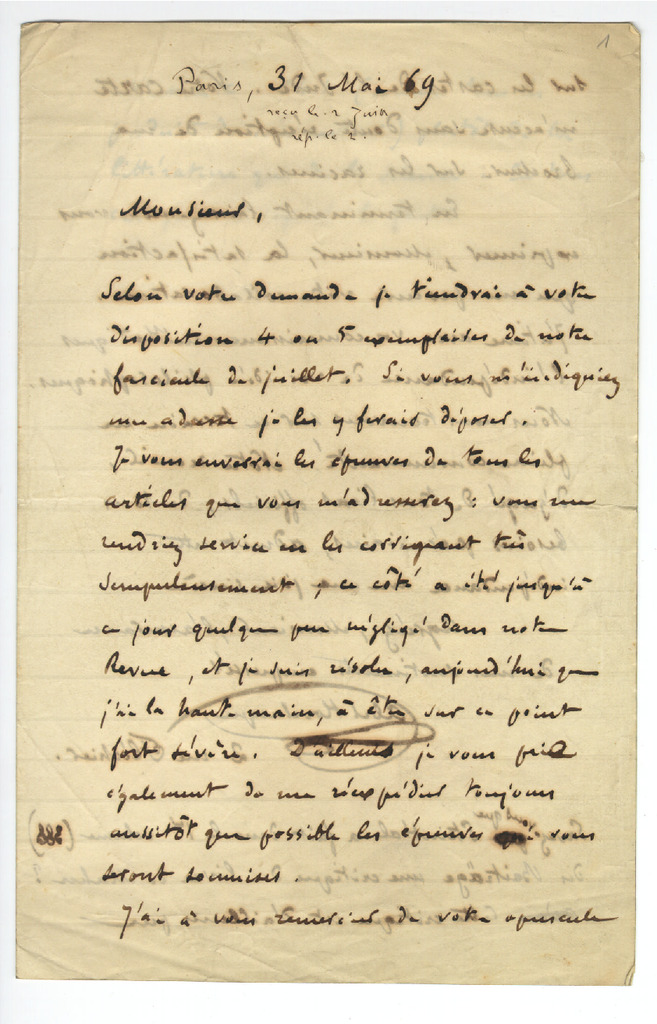 1
Paris, 31 Mai 69
reçu le 2 Juin
rép. le 2.
Monsieur,
Selon votre demande je tiendrai à votre
disposition 4 ou 5 exemplaires de notre
fascicule de juillet. Si vous m'indiquiez
une adresse je les y ferais déposer.
Je vous enverrai les épreuves de tous les
articles que vous m'adresserez : vous me
rendriez service en les corrigeant très
scrupuleusement ; ce côté a été jusqu'à
ce jour quelque peu négligé dans notre
Revue, et je suis résolu, aujourd'hui que
j'ai la haute main, à être sur ce point
fort sévère. D'ailleurs je vous prie
également de me réexpédier toujours
aussitôt que possible les épreuves qui vous
seront soumises.
J'ai à vous remercier de votre opuscule